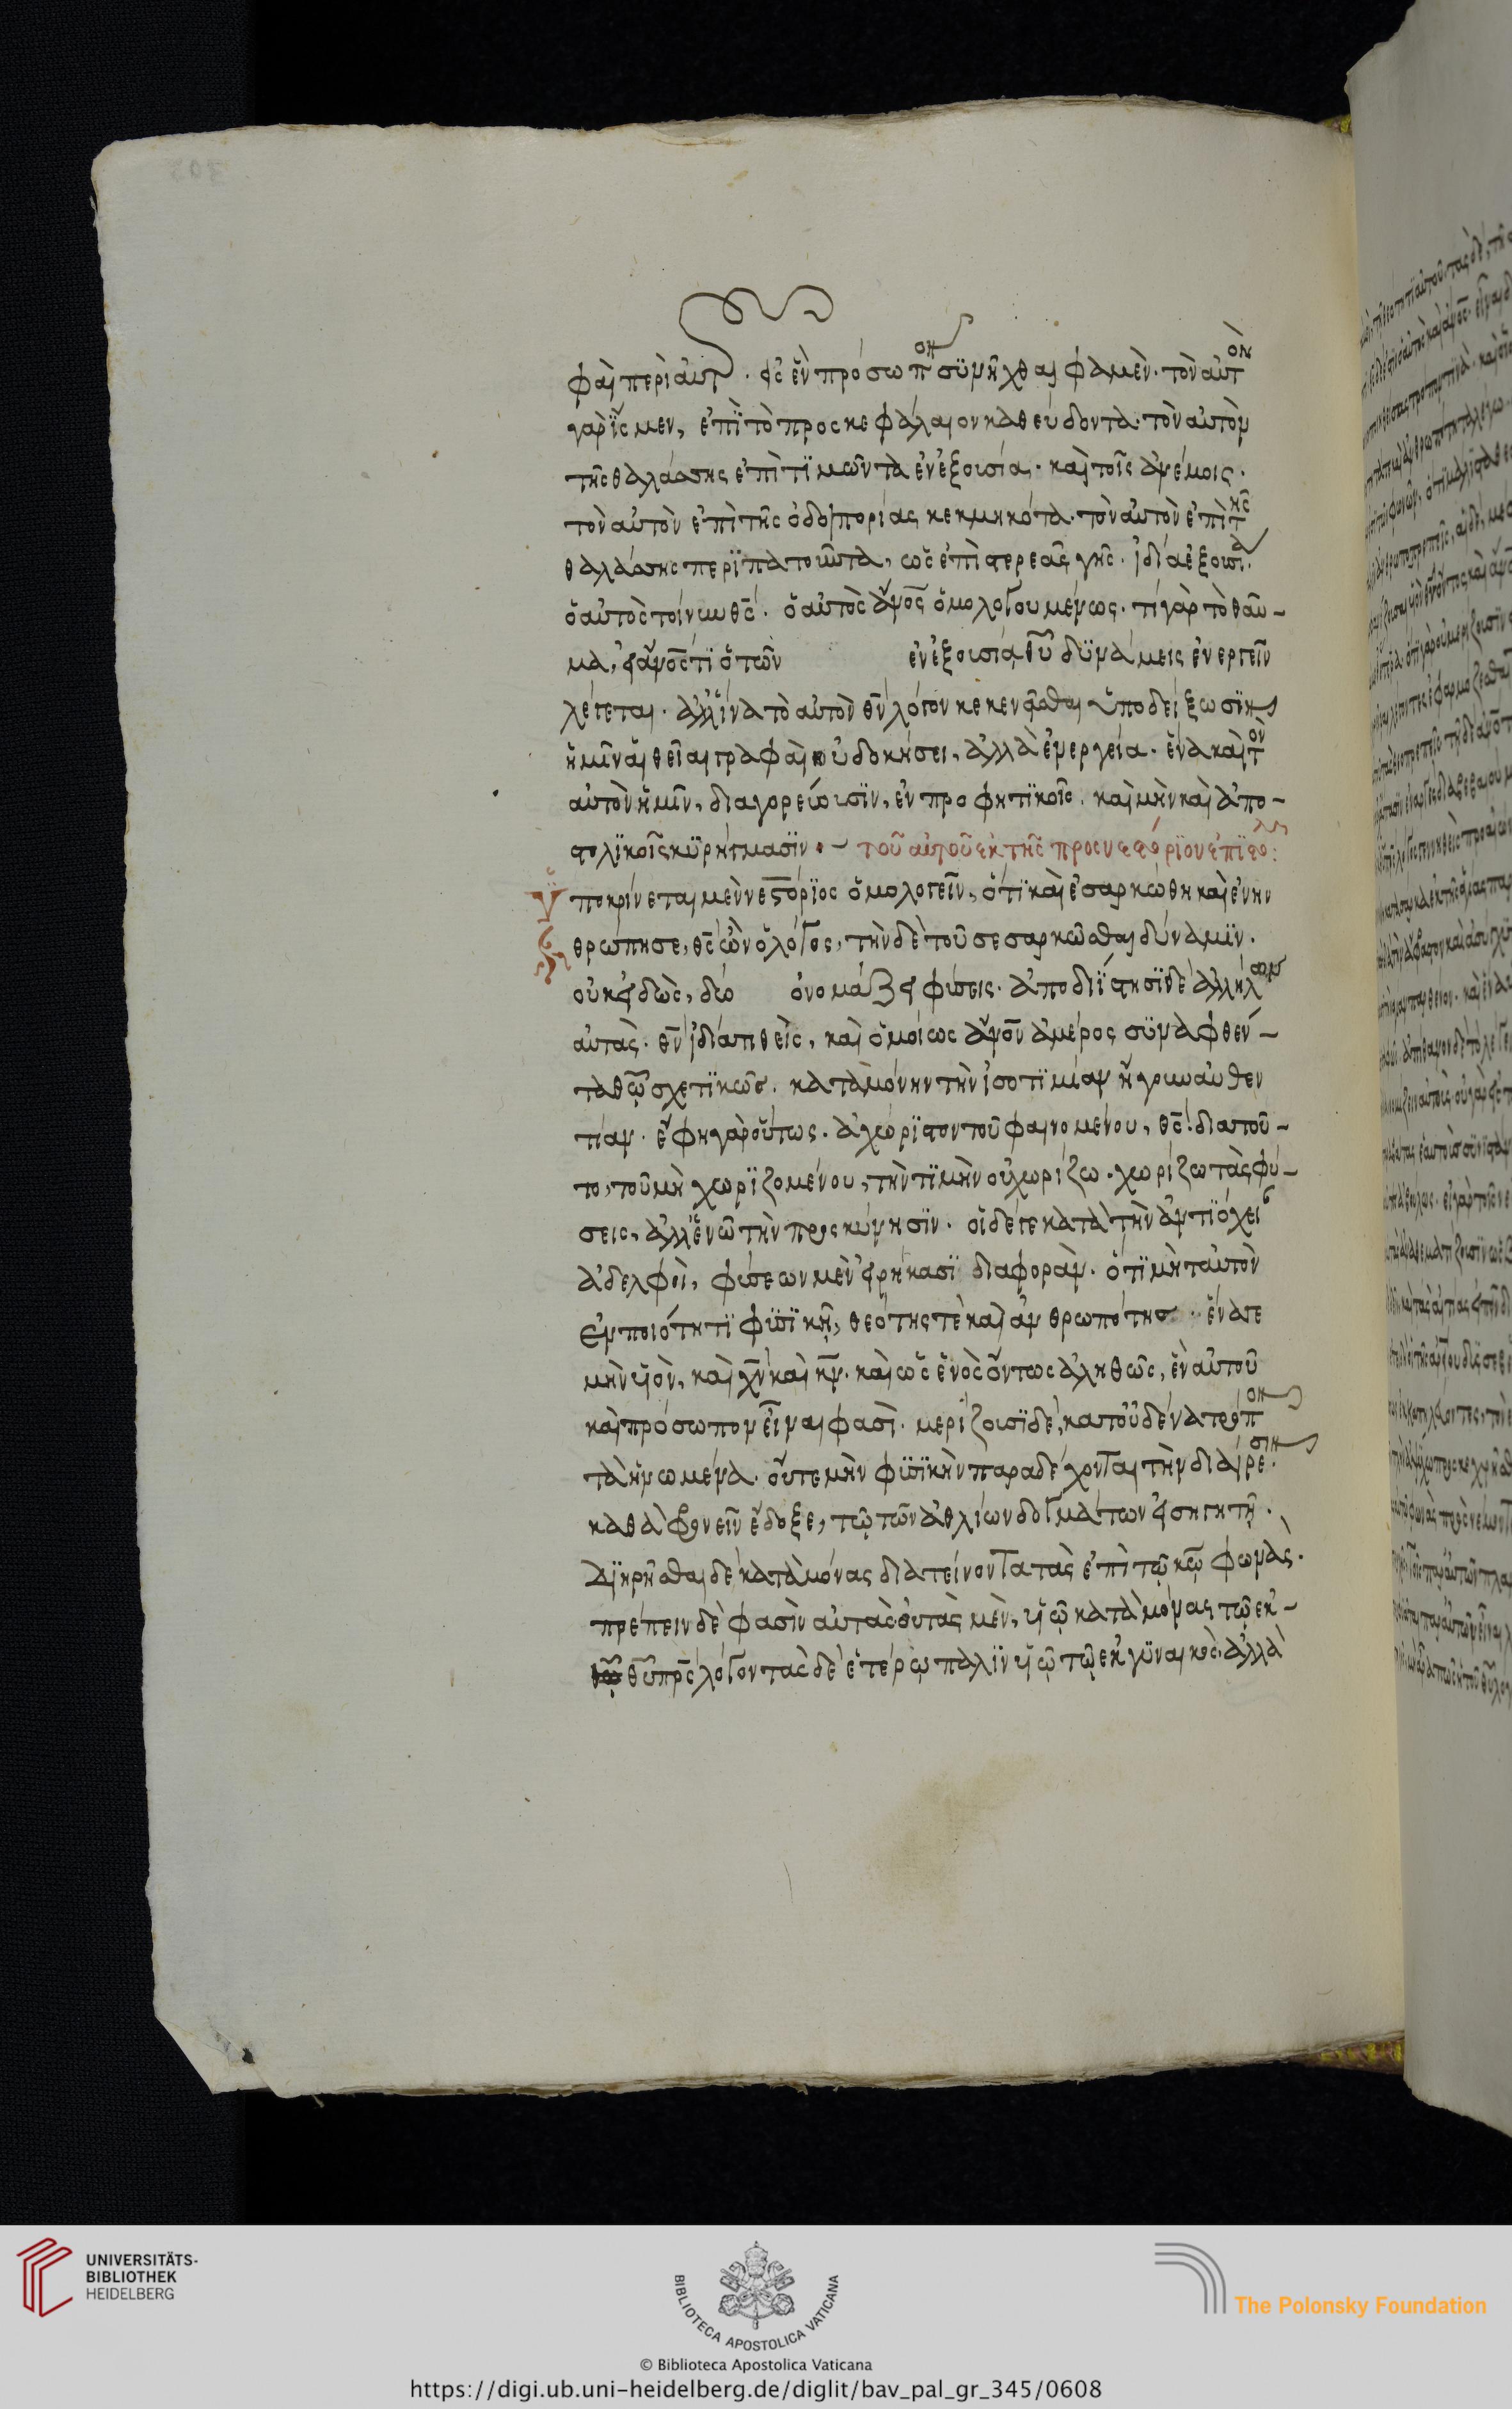 φαὶ περὶ αὐτ. εἰς ἓν πρόσωπον συνῆχθαι φαμέν. τὸν αὐτὸν
γὰρ ἴσμεν, ἐπὶ τὸ προσκεφάλαιον καθεύδοντα. τὸν αὐτὸν
τῆς θαλάσσης ἐπιτιμῶντα ἐν ἐξουσίᾳ. καὶ τοῖς ἀνέμοις.
τὸν αὐτὸν ἐπὶ τῆς ὁδοιπορίας κεκμηκότα. τὸν αὐτὸν ἐπὶ τῆς
θαλάσσης περιπατοῦντα, ὡς ἐπὶ στερεᾶς γῆς. ἰδίᾳ ἐξουσίᾳ.
ὁ αὐτὸς τοίνυν θς. ὁ αὐτὸς ἄνος ὁμολογουμένως. τί γὰρ τὸ θαῦ-
μα, εἰ ἄνος ἔτι ὁ τῶν ἐν ἐξουσίᾳ θυ δυνάμεις ἐνεργεῖν
λέγεται. ἀλλ' ἵνα τὸ αὐτὸν θν λόγον κεκενῶσθαι ὑποδείξωσιν
ἡμῖν αἱ θεῖαι γραφαὶ οὐ δοκήσει, ἀλλὰ ἐνεργείᾳ. ἕνα καὶ τὸν
αὐτὸν ἡμῖν, διαγορεύουσιν, ἐν προφητικοῖς. καὶ μὴν καὶ ἀπο-
στολικοῖς κηρύγμασιν. τοῦ αὐτοῦ ἐκ τῆς πρὸς νεστόριον ἐπιστολῆς:
Ὑποκρίνεται μὲν νεστόριος ὁμολογεῖν, ὅτι καὶ ἐσαρκώθη καὶ ἐνην
θρώπησε, θς ὢν ὁ λόγος, τὴν δὲ τοῦ σεσαρκῶσθαι δύναμιν.
οὐκ εἰδὼς, δύο ὀνομάζει φύσεις. ἀποδιίστησι δὲ ἀλλήλων
αὐτὰς. θν ἰδίᾳ τιθεὶς, καὶ ὁμοίως ἄνον ἀμέρος συναφθέν-
τα θω σχετικῶς. κατὰ μόνην τὴν ἰσοτιμίαν ἤγουν αὐθεν
τίαν. ἔφη γὰρ οὕτως. ἀχώριστον τοῦ φαινομένου, θς. διὰ τοῦ-
το, τοῦ μὴ χωριζομένου, τὴν τιμὴν οὐ χωρίζω. χωρίζω τὰς φύ-
σεις, ἀλλ' ἑνῶ τὴν προσκύνησιν. οἱ δέ γε κατὰ τὴν ἀντιόχει
ἀδελφοὶ, φύσεων μὲν εἰρήκασι διαφορὰν. ὅτι μὴ ταὐτὸν
ἐν ποιότητι φυσικῇ, θεότης τὲ καὶ ἀνθρωπότης. ἕνα γε
μὴν υἱὸν, καὶ χν καὶ κν. καὶ ὡς ἑνὸς ὄντως ἀληθῶς, ἓν αὐτοῦ
καὶ πρόσωπον εἶναι φασὶ. μερίζουσι δὲ, κατ' οὐδένα τρόπον
τὰ ἡνωμένα. οὔτε μὴν φυσικὴν παραδέχονται τὴν διαίρεσιν
καθὰ φρονεῖν ἔδοξε, τῷ τῶν ἀθλίων δογμάτων εἰσηγητῇ.
διῃρῆσθαι δὲ κατὰ μόνας διατείνονται τὰς ἐπὶ τῷ κω φωνὰς.
πρέπειν δὲ φασὶν αὐτὰς οὐ τὰς μὲν, υἱῷ κατὰ μόνας τῷ ἐκ-
θυ πρς λόγον τὰς δὲ ἑτέρῳ πάλιν υἱῷ τῷ ἐκ γυναικὸς. ἀλλὰ
UNIVERSITÄTS-
BIBLIOTHEK
HEIDELBERG
BIBLIOTECA APOSTOLICA VATICANA
The Polonsky Foundation
© Biblioteca Apostolica Vaticana
https://digi.ub.uni-heidelberg.de/diglit/bav_pal_gr_345/0608